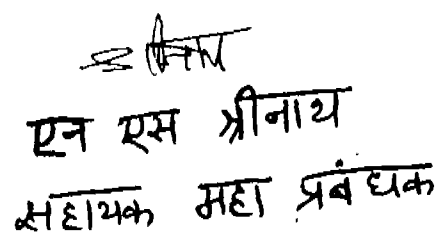 एन एस श्रीनाथ
सहायक महा प्रबंधक